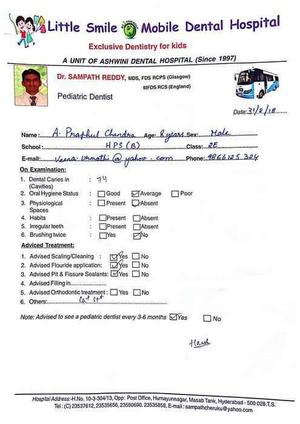 Little Smile Mobile Dental Hospital
Exclusive Dentistry for kids
A UNIT OF ASHWINI DENTAL HOSPITAL (Since 1997)
Dr. SAMPATH REDDY, MDS, FDS RCPS (Glasgow)
MFDS RCS (England)
Pediatric Dentist
Date: 31/2/18
Name: A. Praphul Chandra Age: 8 years Sex: Male
School: HPS (B) Class: 2E
E-mail: @yahoo.com Phone: 9866125324
On Examination:
1. Dental Caries in (Cavities) :
2. Oral Hygiene Status : Good Average Poor
3. Physiological Spaces : Present Absent
4. Habits : Present Absent
5. Irregular teeth : Present Absent
6. Brushing twice : Yes No
Adviced Treatment:
1. Advised Scaling/Cleaning : Yes No
2. Advised Flouride application: Yes No
3. Advised Pit & Fissure Sealants: Yes No
4. Advised Filling in
5. Advised Orthodontic treatment : Yes No
6. Others:
Note: Advised to see a pediatric dentist every 3-6 months Yes No
Hospital Address:-H.No. 10-3-304/13, Opp: Post Office, Humayunnagar, Masab Tank, Hyderabad - 500 028-T.S.
Tel: (C) 23537612, 23535656, 23590690, 23535858, E-mail : sampathcheruku@yahoo.com